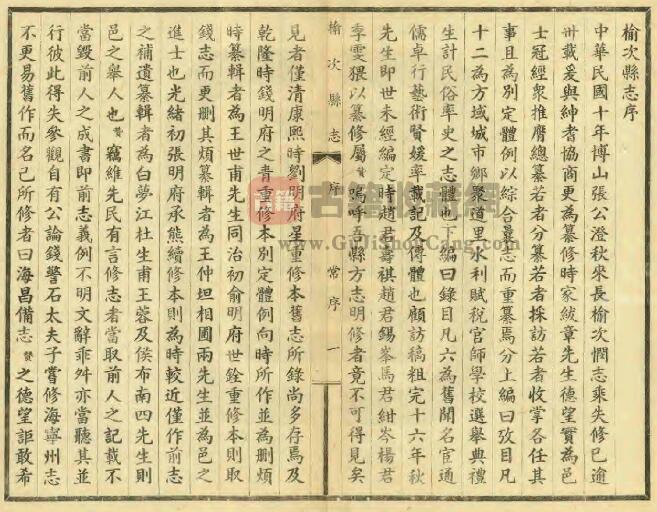 榆次縣志序
中華民國十年博山張公澄秋來長榆次憫志乘失修已逾
卅載爰與紳耆協商更為纂修時家紱章先生德望實為邑
士冠經眾推膺總纂若者分纂若者採訪若者收掌各任其
事且為別定體例以綜合曩志而重纂焉分上編曰攷目凡
十二為方域城市鄉聚道里水利賦稅官師學校選舉典禮
生計民俗率史之志體也下編曰錄目凡六為舊聞名宦通
儒卓行藝術賢媛率載記及傳體也顧訪稿粗完十六年秋
先生即世未經編定時趙君壽祺趙君錫峯馬君紺岑楊君
季雯猥以纂修屬贊嗚呼吾縣方志明修者竟不可得見矣
榆次縣志 序 常序 一
見者僅清康熙時劉明府星重修本舊志所錄尚多存焉及
乾隆時錢明府之青重修本別定體例向時所作並為刪煩
時纂輯者為王世甫先生同治初俞明府世銓重修本則取
錢志而更刪其煩纂輯者為王仲坦相國兩先生並為邑之
進士也光緒初張明府承熊續修本則為時較近僅作前志
之補遺纂輯者為白夢江杜生甫王蓉及侯布南四先生則
邑之舉人也贊竊維先民有言修志者當取前人之記載不
當毀前人之成書即前志義例不明文辭乖舛亦當聽其並
行彼此得失參觀自有公論錢警石太夫子嘗修海寧州志
不更易舊作而名己所修者曰海昌備志贊之德望詎敢希
古籍收藏網
www.GuJiShouCang.com